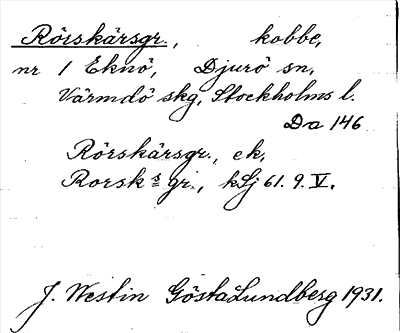 Rörskärsgr., kobbe,
nr 1 Eknö, Djurö sn,
Värmdö skg, Stockholms l.
Da 146
Rörskärsgr., ek,
Rorsk s gr., kSj 61. 9. V.
J. Westin Gösta Lundberg 1931.